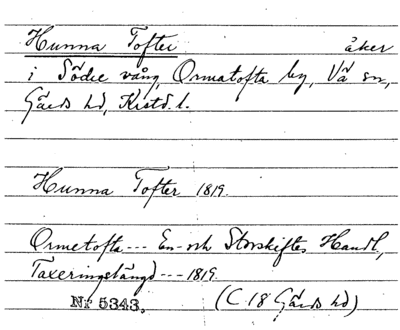 Hunna Tofter åker
i Södre vång, Ormatofta by, Vä sn,
Gärds hd, Kristd. l.
Hunna Tofter 1819.
Ormetofta --- En- och Storskiftes Handl,
Taxeringslängd --- 1819.
Nr 5343. (C 18 Gärds hd)